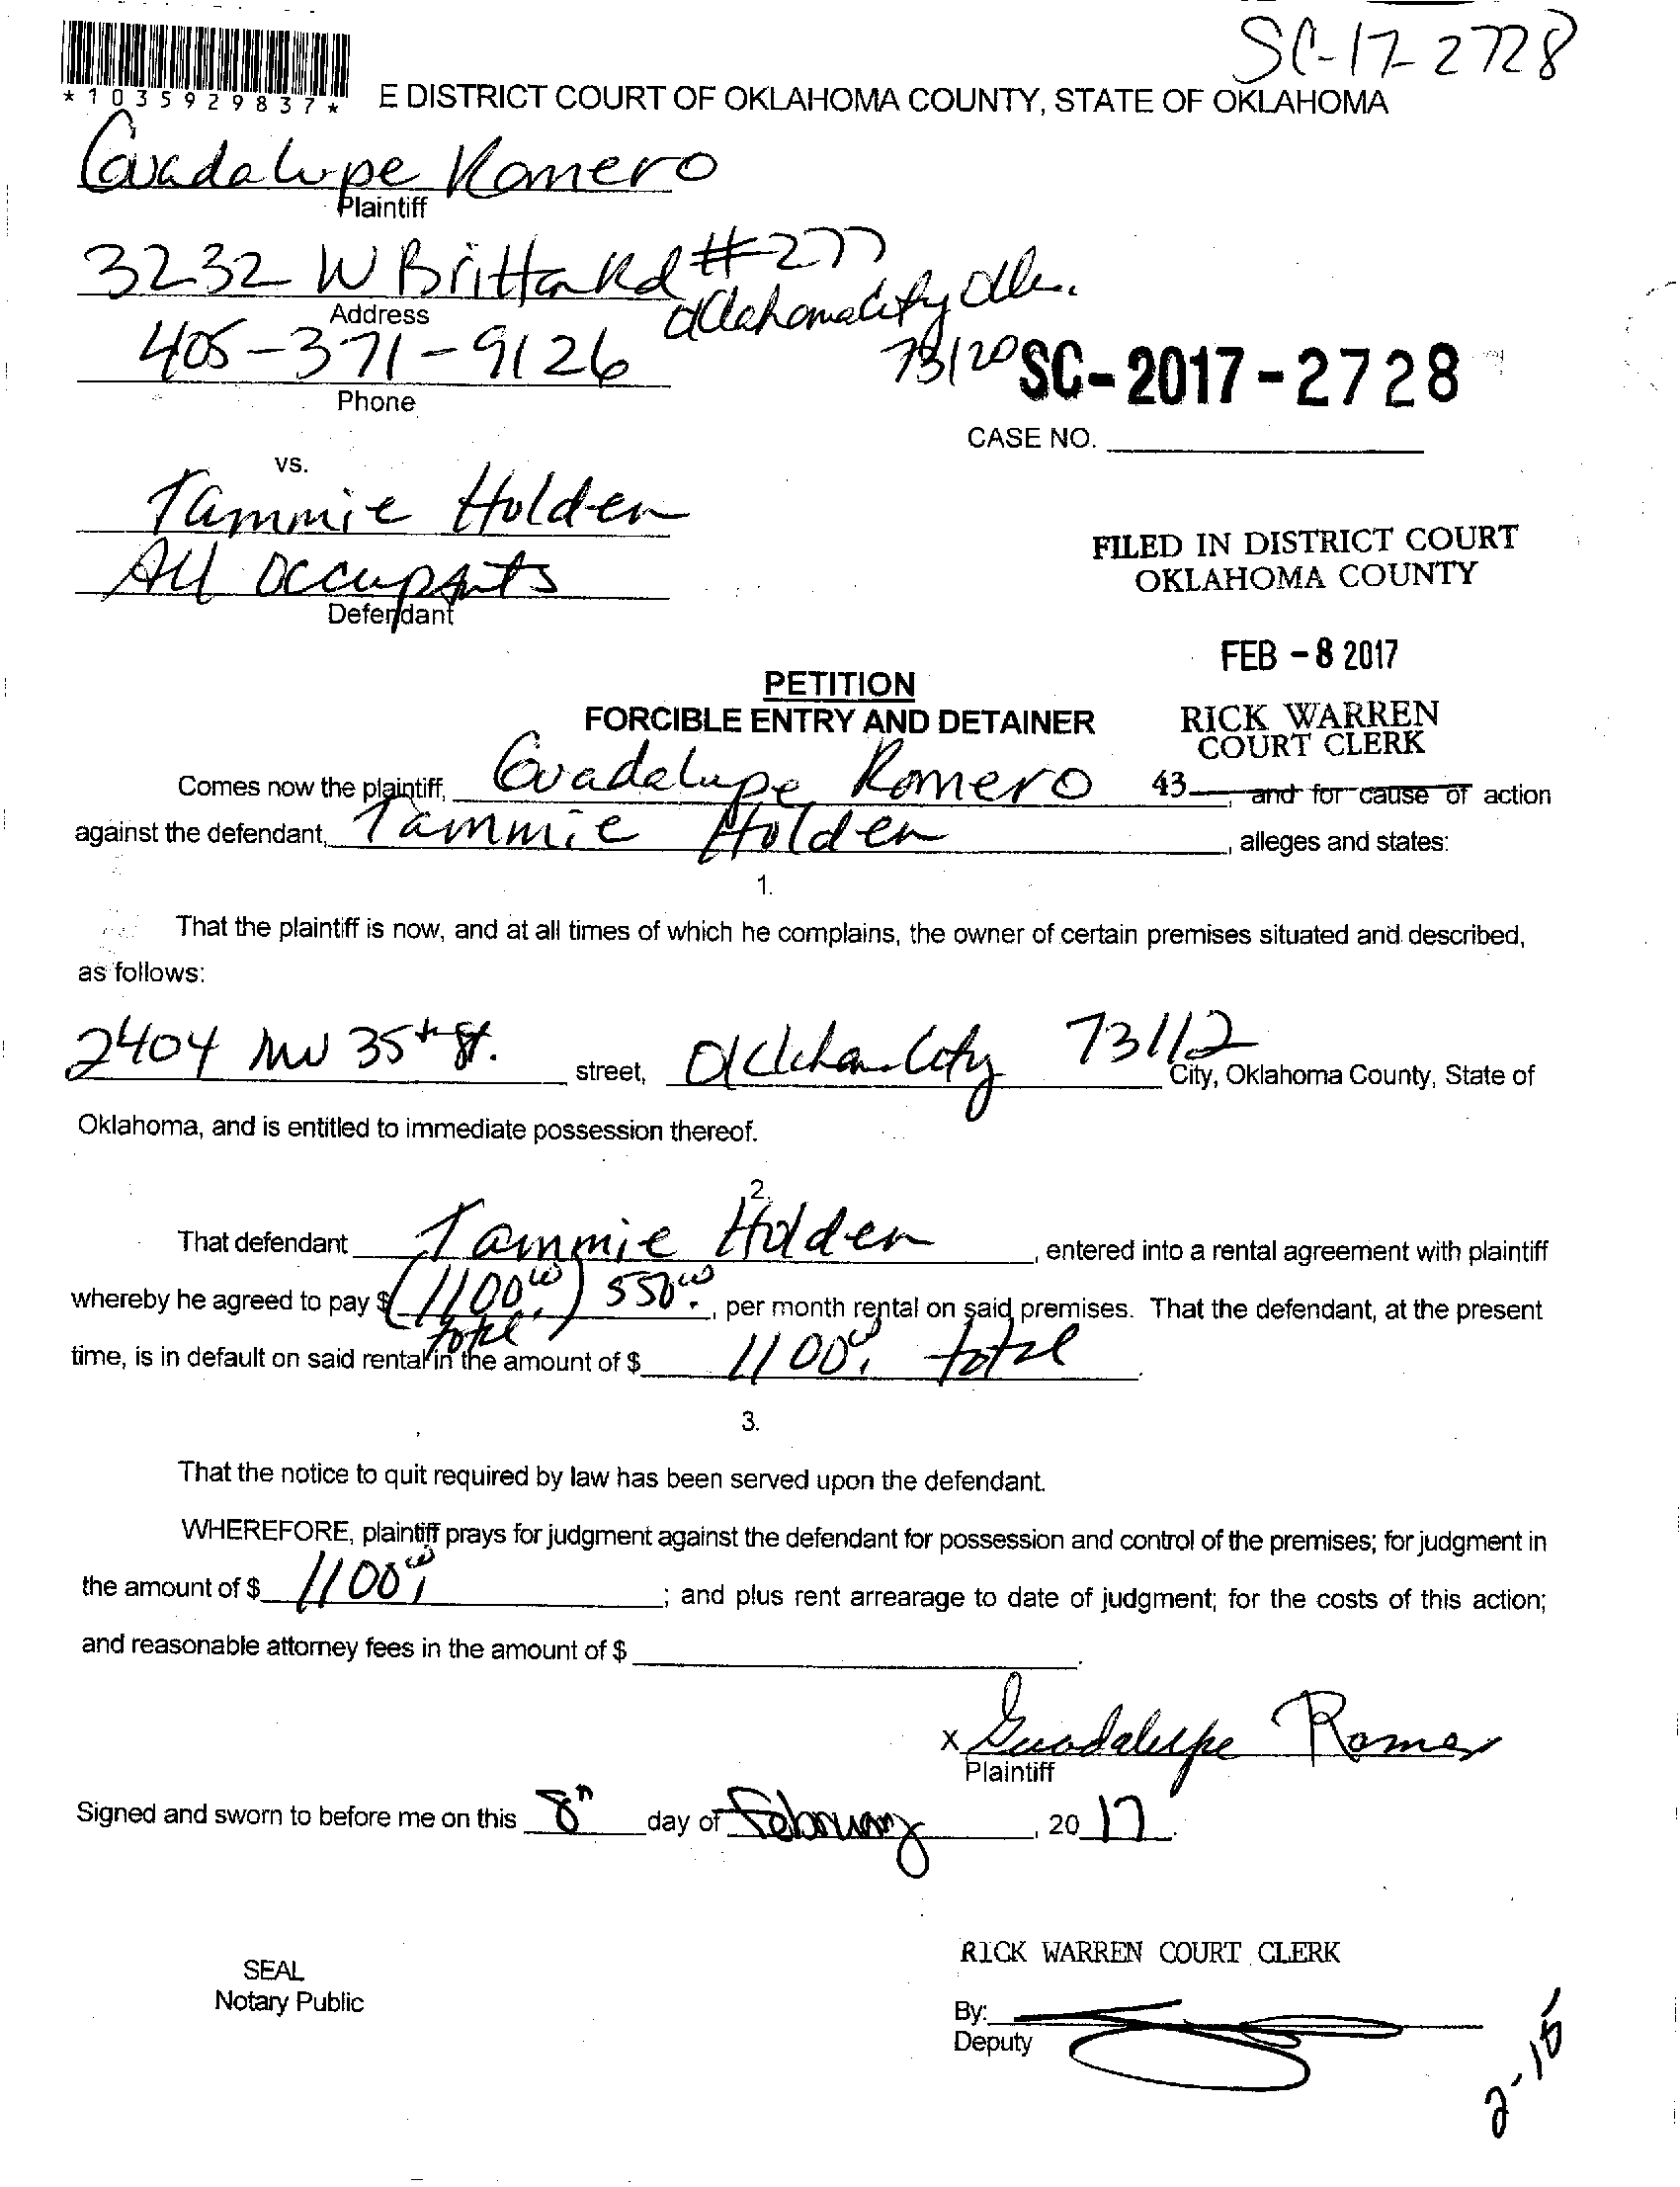 SC-17-2728
*1035929837*
E DISTRICT COURT OF OKLAHOMA COUNTY, STATE OF OKLAHOMA
Guadalupe Romero
Plaintiff
3232 W Britton Rd #277
Address
Oklahoma City Okla.
405-371-9126
73120
Phone
SC-2017-2728
CASE NO.
vs.
Tammie Holden
All Occupants
Defendant
FILED IN DISTRICT COURT
OKLAHOMA COUNTY
FEB -8 2017
PETITION
FORCIBLE ENTRY AND DETAINER
RICK WARREN
COURT CLERK
Comes now the plaintiff, Guadalupe Romero 43 , and for cause of action
against the defendant, Tammie Holden , alleges and states:
1.
That the plaintiff is now, and at all times of which he complains, the owner of certain premises situated and described,
as follows:
2404 NW 35th St. street, Oklahoma City 73112 City, Oklahoma County, State of
Oklahoma, and is entitled to immediate possession thereof.
2.
That defendant Tammie Holden , entered into a rental agreement with plaintiff
whereby he agreed to pay $ (1100.00 total) 550.00 , per month rental on said premises. That the defendant, at the present
time, is in default on said rental in the amount of $ 1100.00 total .
3.
That the notice to quit required by law has been served upon the defendant.
WHEREFORE, plaintiff prays for judgment against the defendant for possession and control of the premises; for judgment in
the amount of $ 1100.00 ; and plus rent arrearage to date of judgment; for the costs of this action;
and reasonable attorney fees in the amount of $ .
x Guadalupe Romero
Plaintiff
Signed and sworn to before me on this 8th day of February , 20 17 .
RICK WARREN COURT CLERK
SEAL
Notary Public
By:
Deputy
2-15